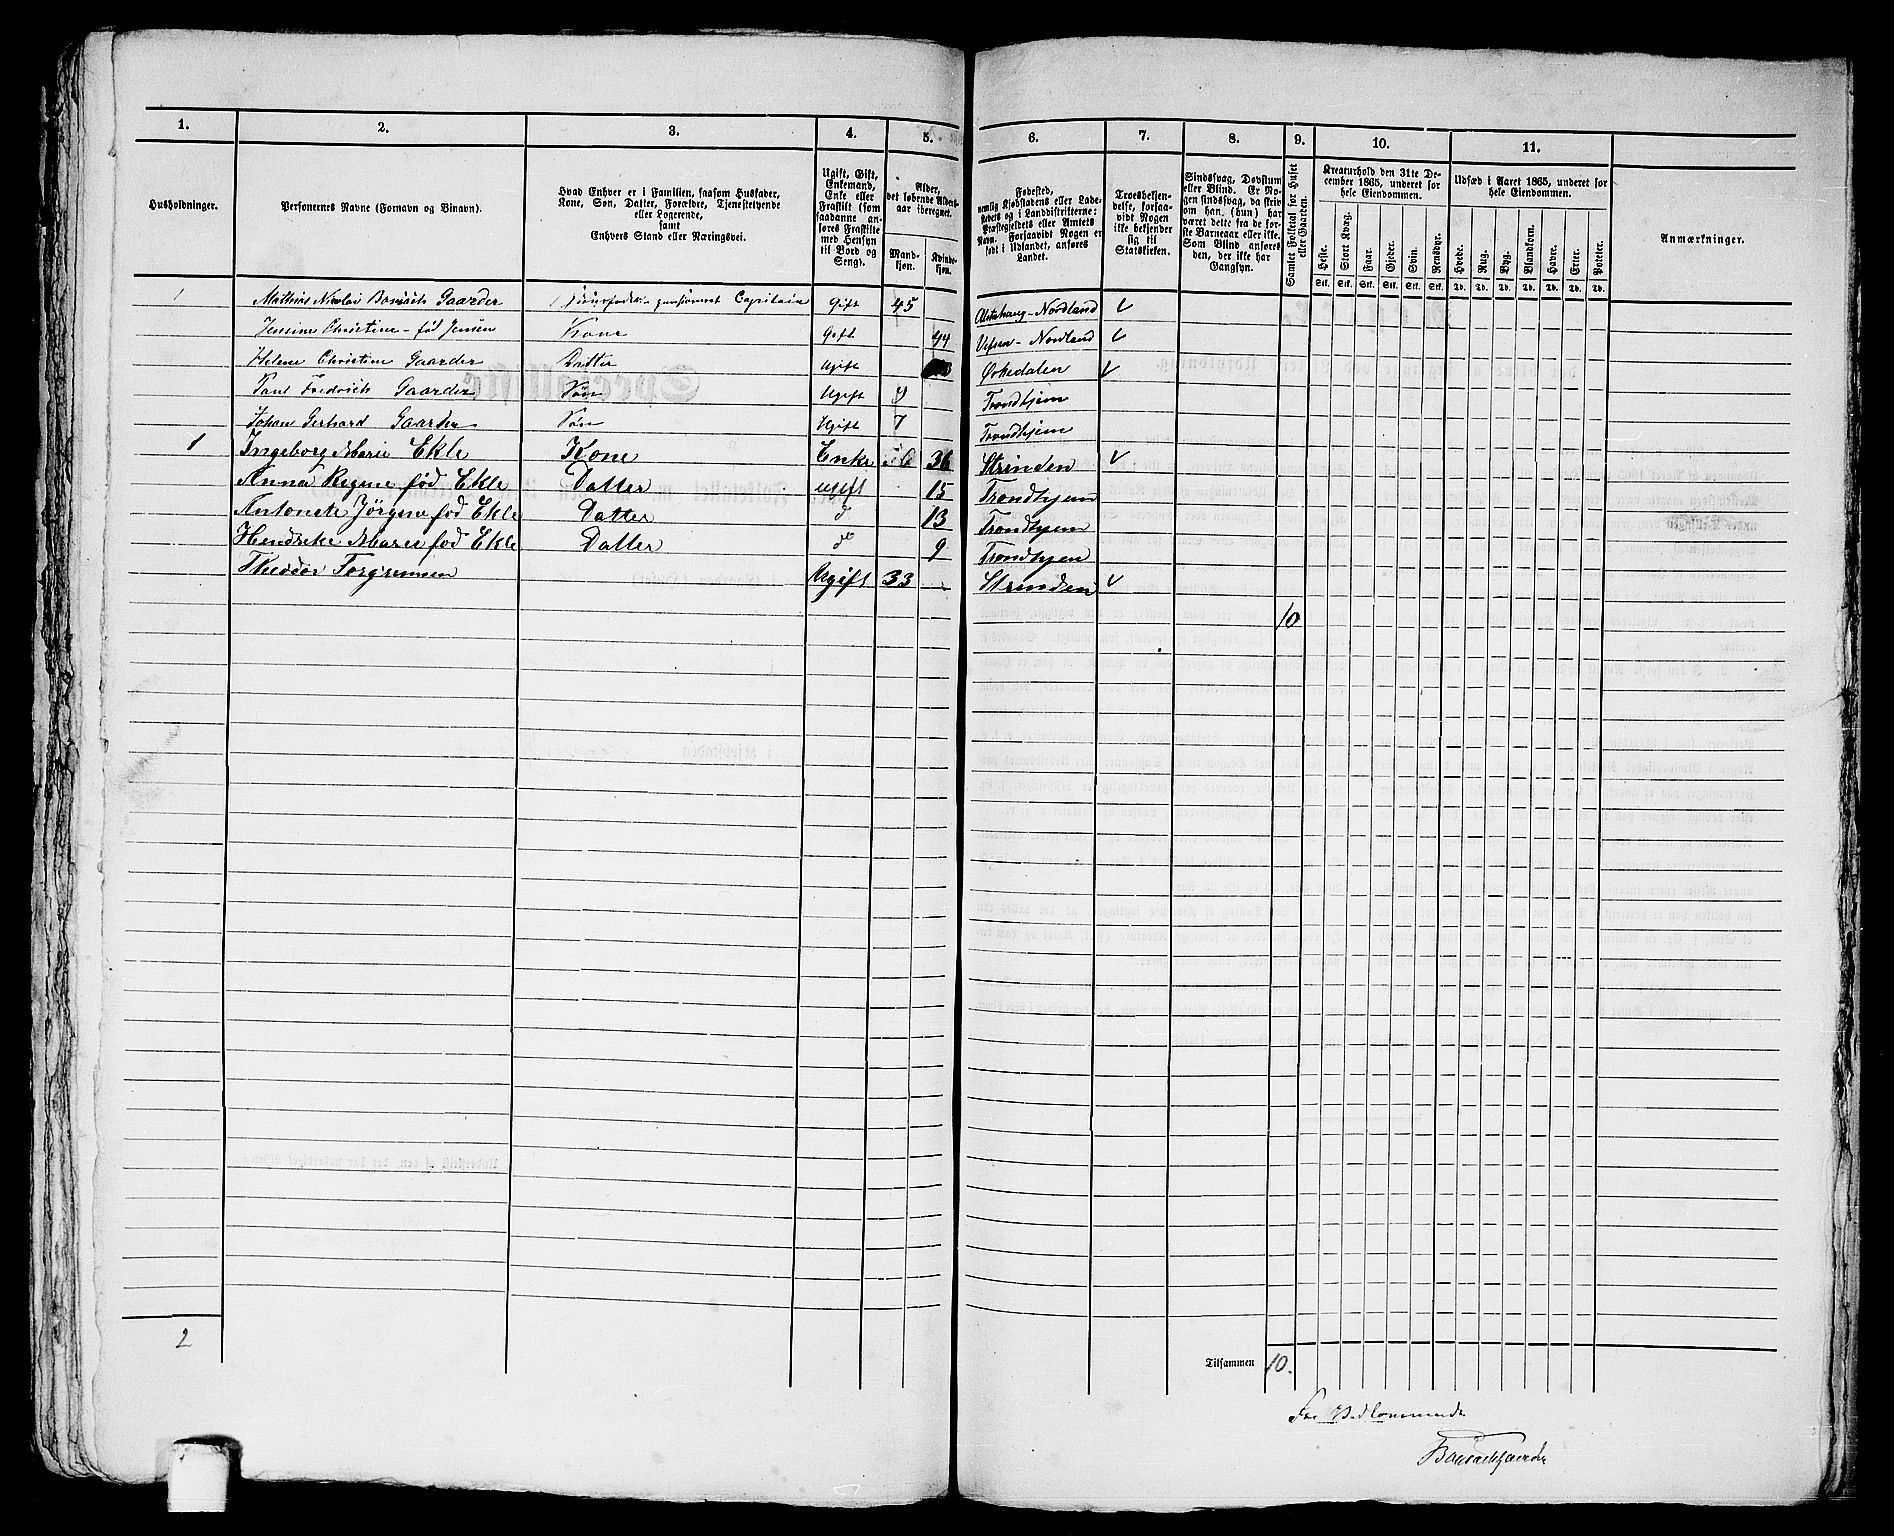 1. 2. 3. 4. 5. 6. 7. 8. 9. 10. 11.
Husholdninger.
Personernes Navne (Fornavn og Binavn).
Hvad Enhver er i Familien, saasom Husfader,
Kone, Søn, Datter, Forældre, Tjenestetyende
eller Logerende,
samt
Enhvers Stand eller Næringsvei.
Ugift, Gift,
Enkemand,
Enke eller
Fraskilt (som
saadanne an-
føres Fraskilte
med Hensyn
til Bord og
Seng).
Alder,
det løbende Alders-
aar iberegnet.
Mand-
kjøn.
Kvinde-
kjøn.
Fødested,
nemlig Kjøbstadens eller Lade-
stedets og i Landdistrikterne:
Præstegjeldets eller Amtets
Navn. Forsaavidt Nogen er
født i Udlandet, anføres
Landet.
Troesbekjen-
delse, forsaa-
vidt Nogen
ikke bekjender
sig til
Statskirken.
Sindssvag, Døvstum
eller Blind. Er No-
gen sindssvag, da skriv
om han, (hun) har
været dette fra de før-
ste Barneaar eller ikke.
Som Blind anføres
den, der ikke har
Gangsyn.
Samlet Folketal for Huset
eller Gaarden.
Kreaturhold den 31te De-
cember 1865, underet for
hele Eiendommen.
Heste. Stort Kvæg. Faar. Gjeder. Svin. Rensdyr.
Stk. Stk. Stk. Stk. Stk. Stk.
Udsæd i Aaret 1865, underet for
hele Eiendommen.
Hvede. Rug. Byg. Blandkorn. Havre. Erter. Poteter.
Td. Td. Td. Td. Td. Td. Td.
Anmærkninger.
1 Mathias Nicolai Gaarder pensioneret Capitain Gift 45 Alstahaug-Nordland
Jensine Christine - fød Jensen Kone Gift 44 Vefsen - Nordland
Helene Christine Gaarder Datter Ugift Ørkedalen
Paul Fredrich Gaarder Søn Ugift 9 Trondhjem
Johan Gerhard Gaarder Søn Ugift 7 Trondhjem
1 Ingeborg Marie Ekle Kone Enke 36 Strinden
Anna Regine fød Ekle Datter ugift 15 Trondhjem
Antonete Jørgine fød Ekle Datter d 13 Trondhjem
Hendreke Marie fød Ekle Datter do 9 Trondhjen
Theodor Torgrensen Ugift 33 Strinden
10
2
Tilsammen 10.
For Vedkommende